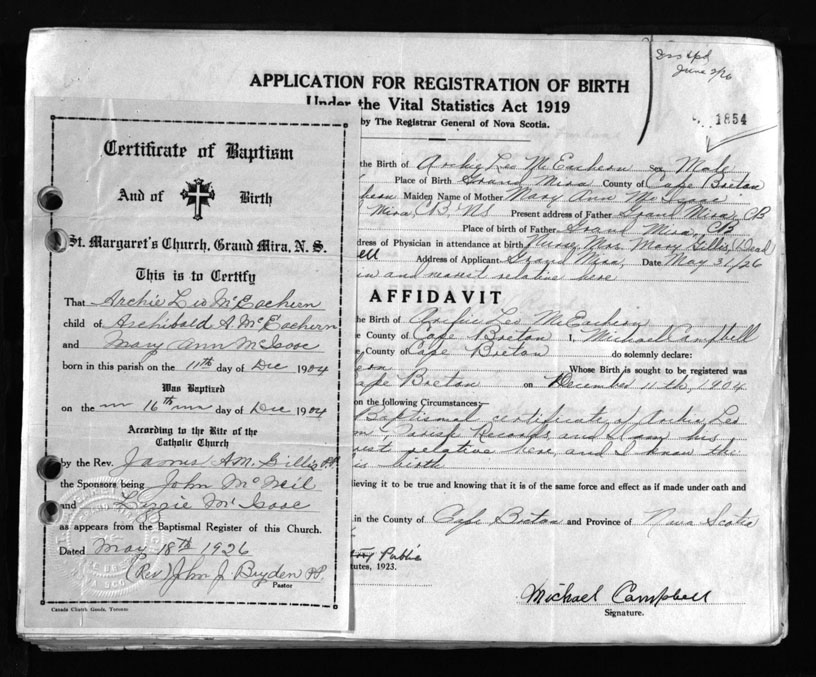 Iss Apd
June 2/26
1854
APPLICATION FOR REGISTRATION OF BIRTH
Under the Vital Statistics Act 1919
by The Registrar General of Nova Scotia.
the Birth of Archie Leo McEachern Male
Place of Birth Grand Mira County of Cape Breton
hern Maiden Name of Mother Mary Ann McIsaac
Mira CB NS Present address of Father Grand Mira, CB
Place of birth of Father Grand Mira, CB
dress of Physician in attendance at birth Nurse Mrs. Mary Gillis (Dead
ell Address of Applicant Grand Mira, Date May 31/26
and nearest relative here
AFFIDAVIT
he Birth of Archie Leo McEachern
e County of Cape Breton I, Michael Campbell
e County of Cape Breton do solemnly declare:
ern Whose Birth is sought to be registered was
ape Breton on December 11th, 1904
on the following Circumstances:
Baptismal certificate of Archie Leo
Parish Records, and I am his
est relative here, and I know the
is birth
lieving it to be true and knowing that it is of the same force and effect as if made under oath and
in the County of Cape Breton and Province of Nova Scotia
Public
tutes, 1923.
Michael Campbell
Signature.
Certificate of Baptism
And of Birth
St. Margaret's Church, Grand Mira, N. S.
This is to Certify
That Archie Leo McEachern
child of Archibald A. McEachern
and Mary Ann McIsaac
born in this parish on the 11th day of Dec 1904
Was Baptized
on the 16th day of Dec 1904
According to the Rite of the
Catholic Church
by the Rev. James A.M. Gillis P.P.
the Sponsors being John McNeil
and Lizzie McIsaac
as appears from the Baptismal Register of this Church.
Dated May 18th 1926
(Rev) John J. Bryden P.P.
Pastor
Canada Church Goods, Toronto